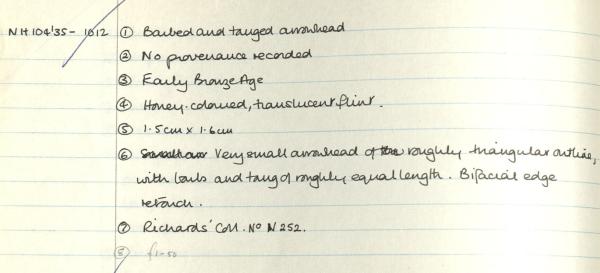 NH104'35-1012 ① Barbed and tanged arrowhead
② No provenance recorded
③ Early Bronze Age
④ Honey-coloured, translucent flint.
⑤ 1.5cm x 1.6cm
⑥ Very small arrowhead of roughly triangular outline,
with barbs and tang of roughly equal length. Bifacial edge
retouch.
⑦ Richards' Coll. No N252.
⑧ £1-50